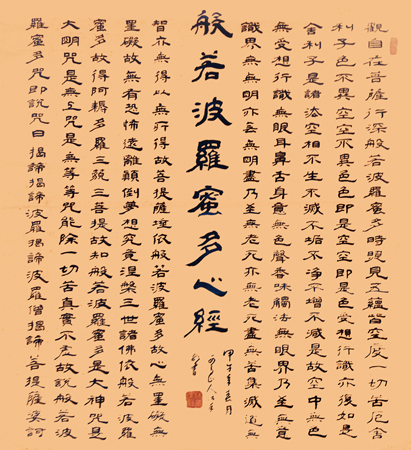 觀自在菩薩行深般若波羅蜜多時照見五蘊皆空度一切苦厄舍
利子色不異空空不異色色即是空空即是色受想行識亦復如是
舍利子是諸法空相不生不滅不垢不淨不增不減是故空中無色
無受想行識無眼耳鼻舌身意無色聲香味觸法無眼界乃至無意
識界無無明亦無無明盡乃至無老死亦無老死盡無苦集滅道無
般若波羅蜜多心經
智亦無得以無所得故菩提薩埵依般若波羅蜜多故心無罣礙無
罣礙故無有恐怖遠離顛倒夢想究竟涅槃三世諸佛依般若波羅
蜜多故得阿耨多羅三藐三菩提故知般若波羅蜜多是大神咒是
大明咒是無上咒是無等等咒能除一切苦真實不虛故說般若波
羅蜜多咒即說咒曰揭諦揭諦波羅揭諦波羅僧揭諦菩提薩婆訶